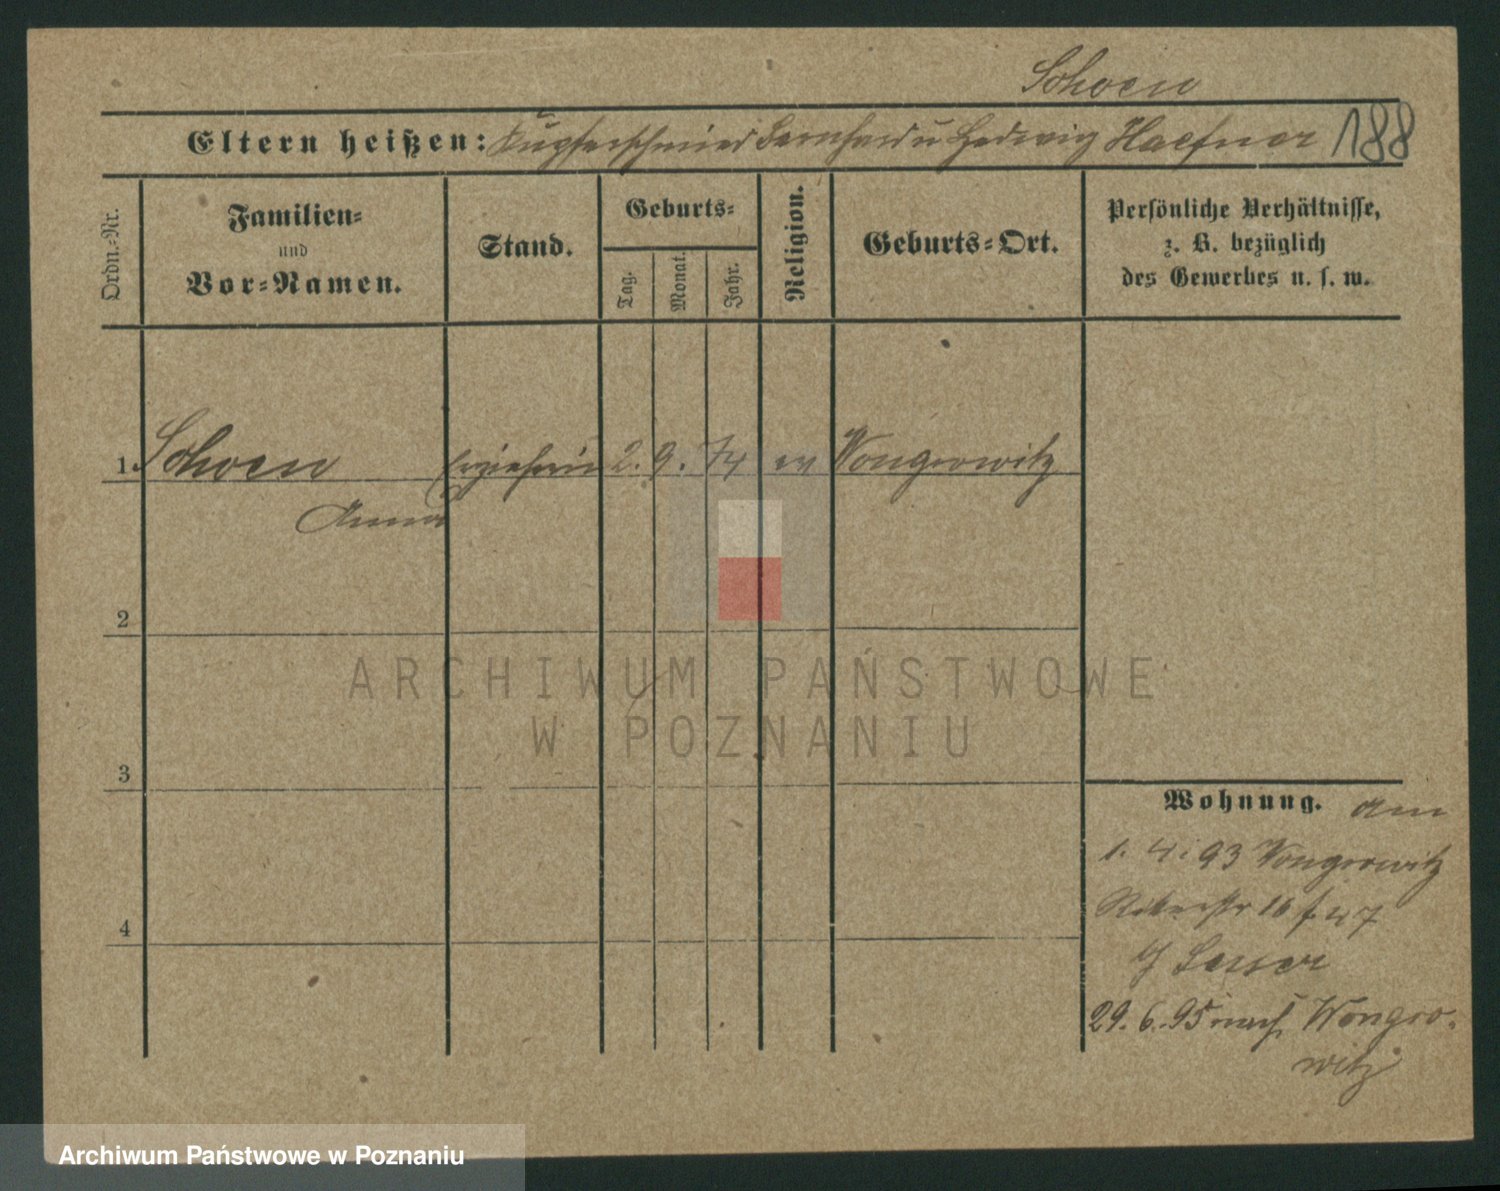 Schoen
Eltern heißen: Kupferschmied Bernhard u Hedwig Haefner 188
Ordn.-Nr.
Familien-
und
Vor-Namen.
Stand.
Geburts-
Tag.
Monat.
Jahr.
Religion.
Geburts-Ort.
Persönliche Verhältnisse,
z. B. bezüglich
des Gewerbes u. s. w.
1. Schoen Erzieherin 2. 9. 74 ev Wongrowitz
Anna
2
3
4
ARCHIWUM PAŃSTWOWE
W POZNANIU
Wohnung. am
1. 4. 93 Wongrowitz
Ritterstr 16
Lesser
29. 6. 95 nach Wongro-
witz
Archiwum Państwowe w Poznaniu